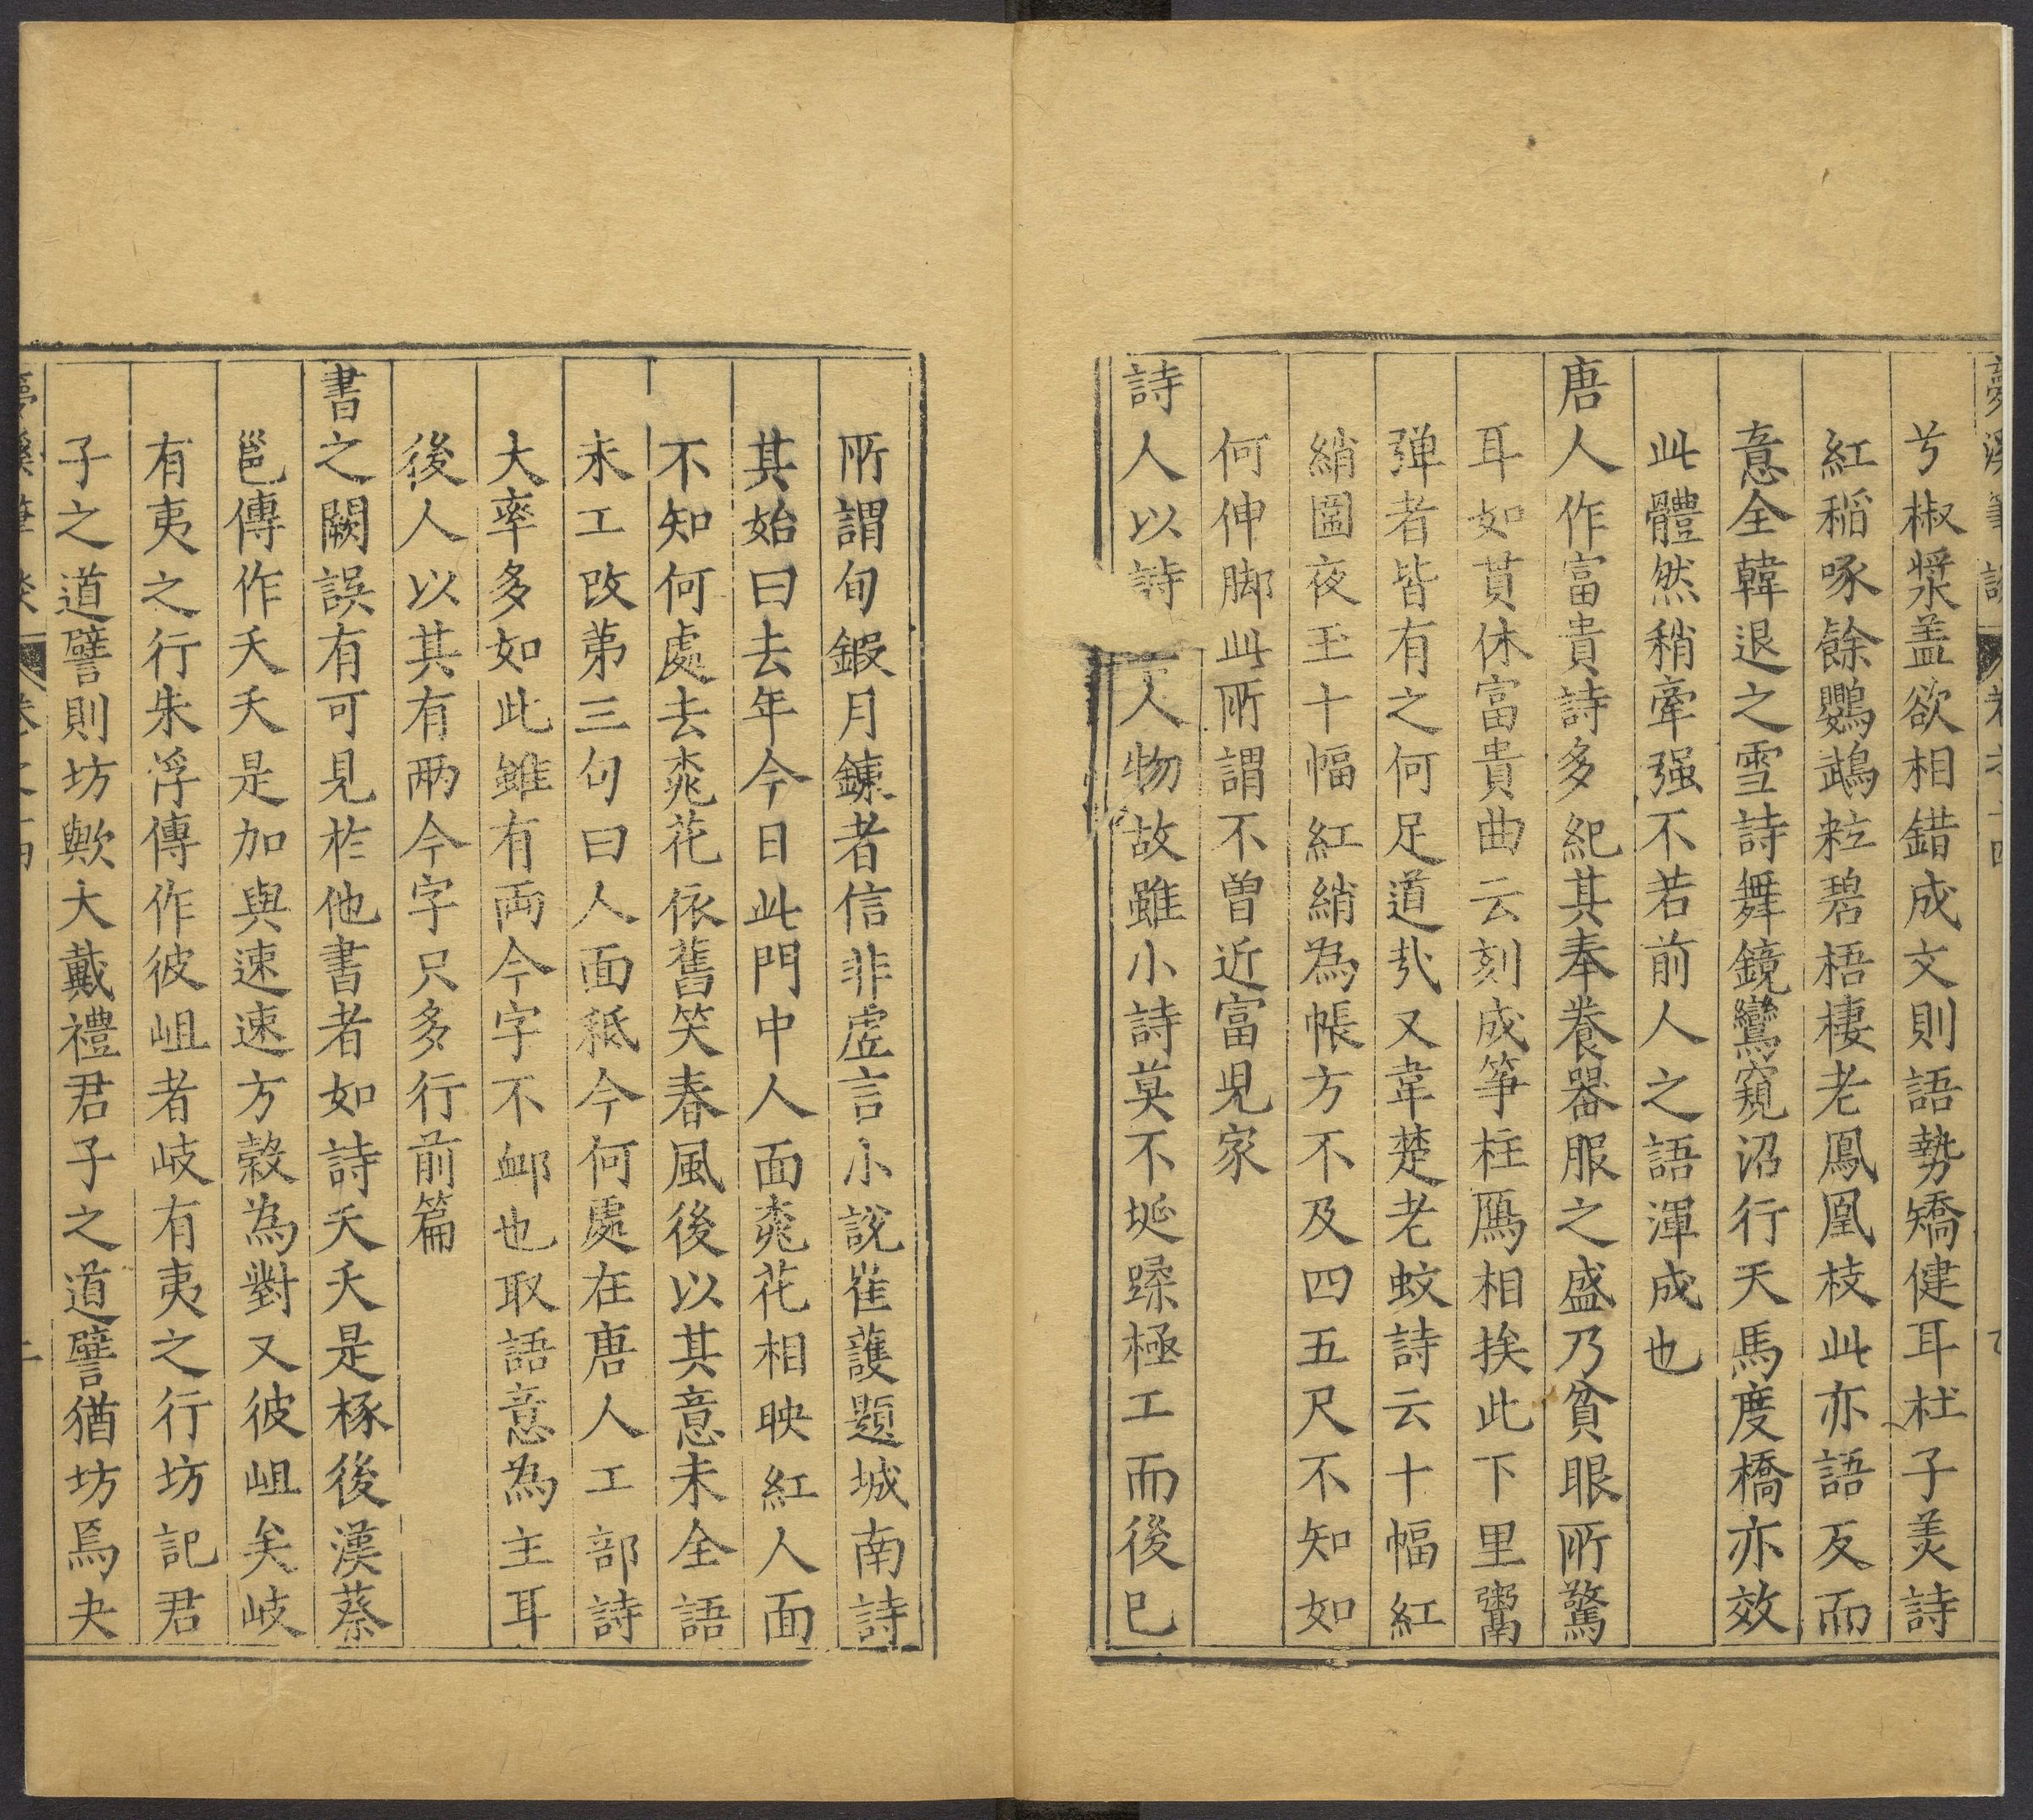 夢溪筆談 卷之十四
兮椒漿盖欲相錯成文則語勢矯健耳杜子羙詩
紅稲啄餘鸚鵡粒碧梧棲老鳳凰枝此亦語反而
意全韓退之雪詩舞鏡鸞窺沼行天馬度橋亦效
此體然稍牽强不若前人之語渾成也
唐人作富貴詩多紀其奉養器服之盛乃貧眼所驚
耳如貫休富貴曲云刻成筝柱鴈相挨此下里鬻
弹者皆有之何足道㢤又韋楚老蚊詩云十幅紅
綃圍夜玉十幅紅綃為帳方不及四五尺不知如
何伸脚此所謂不曾近富児家
詩人以詩 人物故雖小詩莫不埏蹂極工而後已
所謂旬鍜月鍊者信非虛言小說崔護題城南詩
其始曰去年今日此門中人面桃花相映紅人面
不知何處去桃花依舊笑春風後以其意未全語
未工改第三句曰人面秪今何處在唐人工部詩
大率多如此雖有兩今字不卹也取語意為主耳
後人以其有兩今字只多行前篇
書之闕誤有可見於他書者如詩夭夭是椓後漢蔡
邕傳作夭夭是加與速速方穀為對又彼岨矣岐
有夷之行朱浮傳作彼岨者岐有夷之行坊記君
子之道譬則坊歟大戴禮君子之道譬猶坊焉夬
夢溪筆談 卷之十四 二